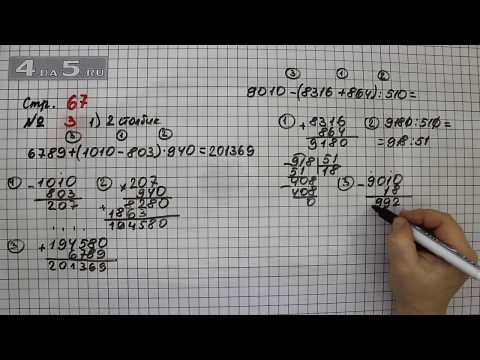 4 DA 5.RU
Стр. 67
№ 3 1) 2 столбик
③ ① ②
6789+(1010-803)·940=201369
① -1010
803
207
② ×207
940
+ 8280
1863
194580
③ +194580
6789
201369
③ ① ②
9010-(8316+864):510=
① +8316
864
9180
② 9180:510=
=918:51
-918 51
51 18
-408
408
0
③ -9010
18
992